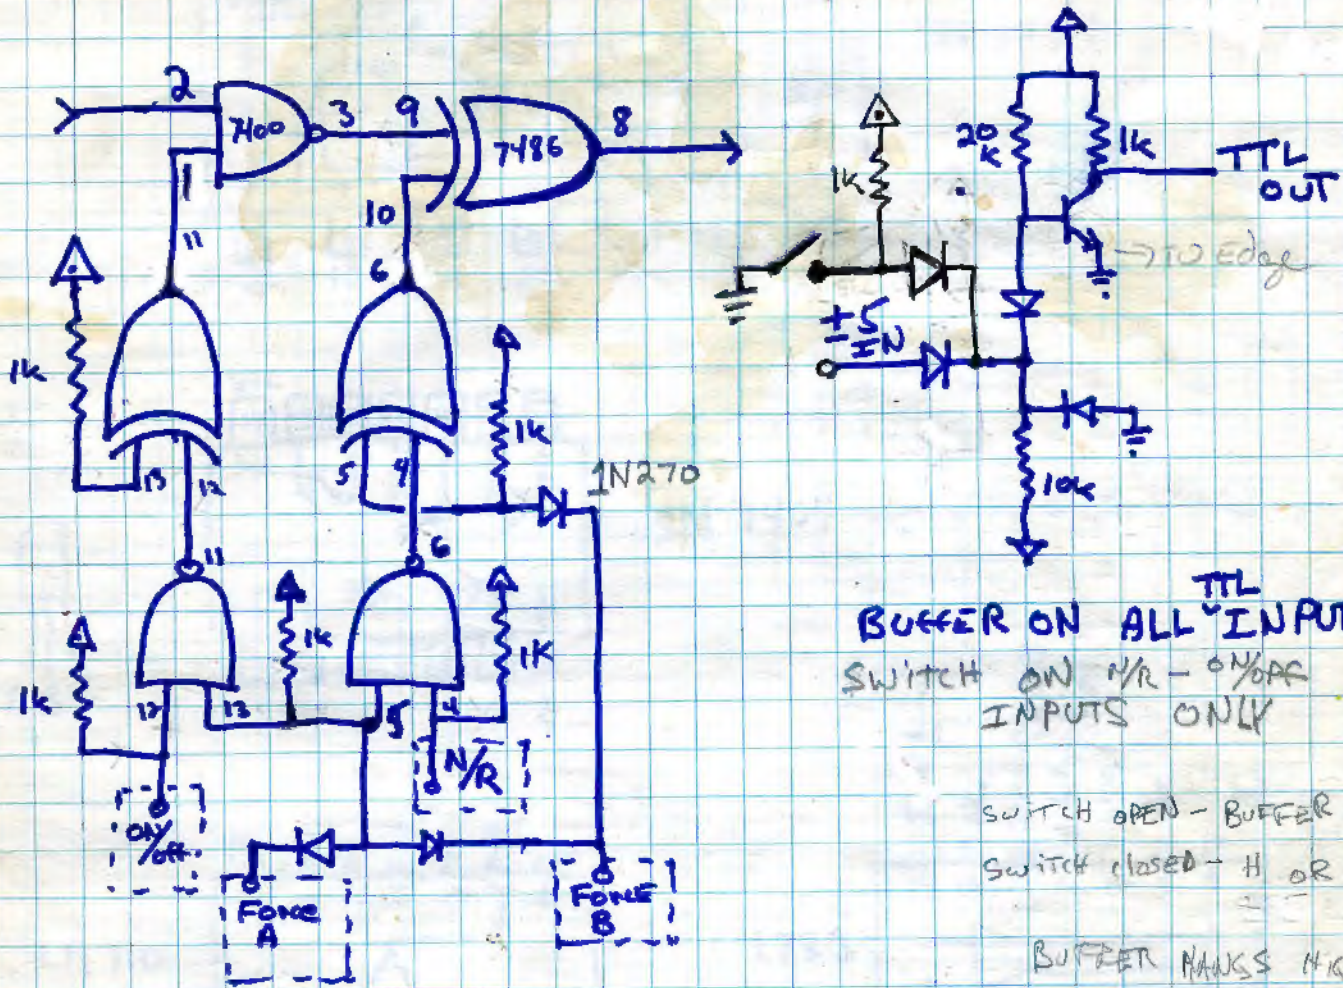 2
7400
3
9
7486
8
1
10
11
6
1k
13
12
5
4
1k
1N270
11
6
1k
1k
1K
12
13
5
4
ON/off
N/R
FORCE
A
FORCE
B
20
k
1k
TTL
OUT
→ TO Edge
1k
±5
IN
10k
TTL
BUFFER ON ALL INPUT
SWITCH ON N/R - ON/OFF
INPUTS ONLY
SWITCH OPEN - BUFFER
SWITCH CLOSED - H OR
BUFFER HANGS